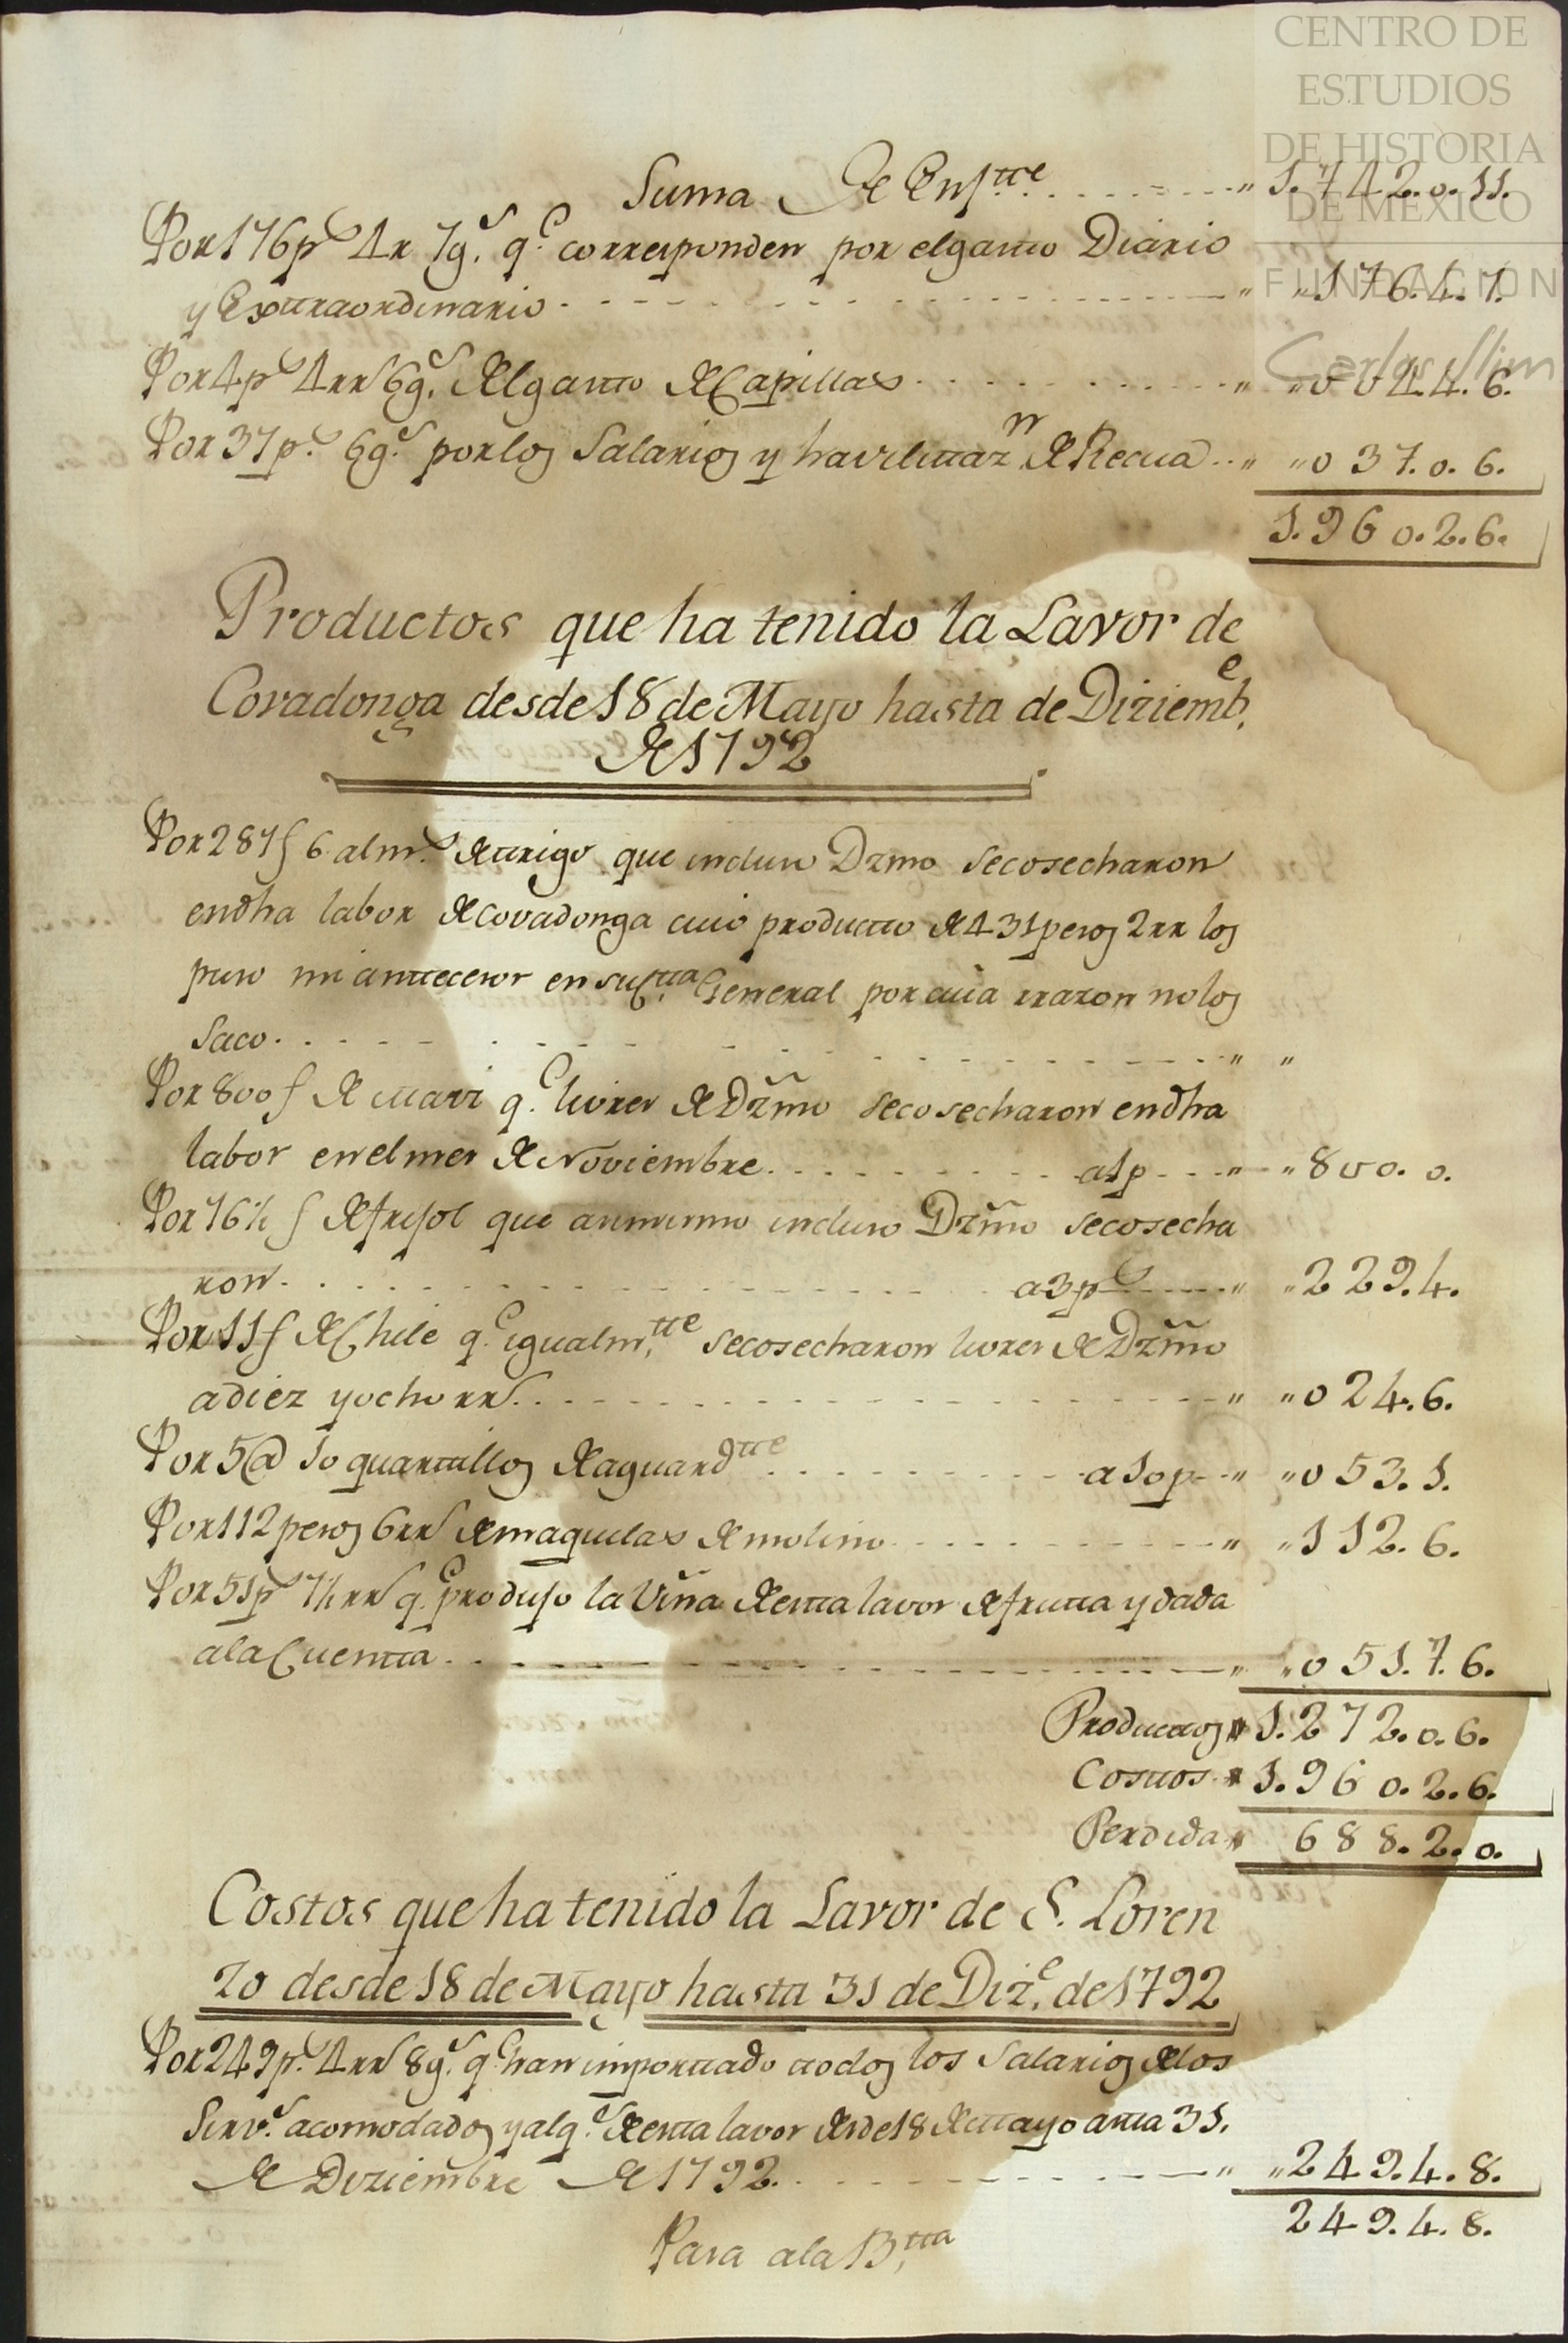 CENTRO DE
ESTUDIOS
DE HISTORIA
DE MEXICO
FUNDACION
Carlos Slim
Suma de Enfᵗᵗᵉ. " 1.742.0.11.
Por 176pˢ 4r 7gˢ. q.ᵉ corresponden por el gasto Diario
y Exttraordinario " " 176.4.7.
Por 4pˢ 4rrˢ 6gˢ. del gasto de Capillas " " 004.4.6.
Por 37pˢ. 6gˢ. por los Salarios y havilittazⁿ de Recua " " 037.0.6.
1.960.2.6.
Productos que ha tenido la Lavor de
Covadonga desde 18 de Mayo hasta de Diziembᵉ.
de 1792
Por 287f 6 almˢ. de ttrigo que incluso Dzmo se cosecharon
en dha labor de Covadonga cuio productto de 431 pesos 2rr los
puso mi anttecesor en su Cᵗᵗᵃ. General por cuia rrazon no los
Saco. " "
Por 800f de maiz q.ᵉ livres de Dzm̃o se cosecharon en dha
labor en el mes de Noviembre a 1p " " 800.0.
Por 76½ f de frijol que asimismo incluso Dzm̃o se cosecha
ron a 3pˢ " " 229.4.
Por 11f de Chile q.ᵉ igualmᵗᵗᵉ. se cosecharon livres de Dzm̃o
a diez y ocho rrˢ. " " 024.6.
Por 5@ 10 quarttillos de aguardᵗᵗᵉ a 10p " " 053.1.
Por 112 pesos 6rrˢ de maquilas de molino " " 112.6.
Por 51pˢ 7½ rrˢ q.ᵉ produjo la Viña de esta lavor de frutta y dada
a la Cuentta " " 051.7.6.
Producttos " 1.272.0.6.
Costtos " 1.960.2.6.
Perdida " 688.2.0.
Costos que ha tenido la Lavor de S. Loren
zo desde 18 de Mayo hasta 31 de Dizᵉ. de 1792
Por 249pˢ. 4rrˢ 8gˢ. q.ᵉ han importtado ttodos los Salarios de los
Sirvˢ. acomodados y alqˢ. de esta lavor desde 18 de Mayo asta 31.
de Diziembre de 1792. " " 249.4.8.
249.4.8.
Pasa a la Bᵗᵗᵃ.